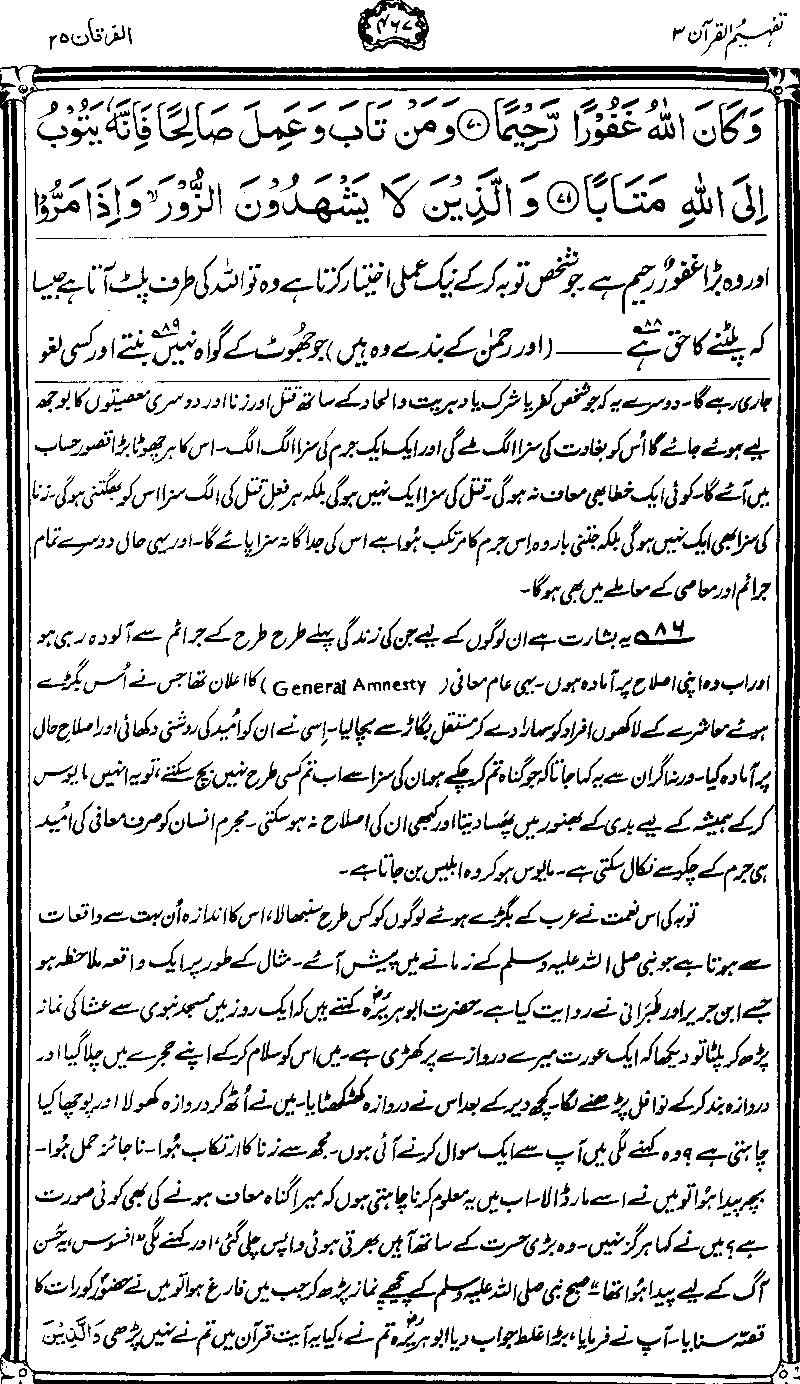 تفہیم القرآن ۳
۴۶۷
الفرقان ۲۵
وَكَانَ اللّٰهُ غَفُوْرًا رَّحِيْمًا ﴿۷۰﴾ وَمَنْ تَابَ وَعَمِلَ صَالِحًا فَاِنَّهٗ يَتُوْبُ
اِلَى اللّٰهِ مَتَابًا ﴿۷۱﴾ وَالَّذِيْنَ لَا يَشْهَدُوْنَ الزُّوْرَ ۙ وَاِذَا مَرُّوْا
اور وہ بڑا غفورٌ رحیم ہے۔ جو شخص توبہ کر کے نیک عملی اختیار کرتا ہے وہ تو اللہ کی طرف پلٹ آتا ہے جیسا
کہ پلٹنے کا حق ہے۸۸ ـــــ (اور رحمٰن کے بندے وہ ہیں) جو جھوٹ کے گواہ نہیں۸۹ بنتے اور کسی لغو
جاری رہے گا۔ دوسرے یہ کہ جو شخص کفر یا شرک یا دہریت والحاد کے ساتھ قتل اور زنا اور دوسری معصیتوں کا بوجھ
لیے ہوئے جائے گا اُس کو بغاوت کی سزا الگ ملے گی اور ایک ایک جرم کی سزا الگ الگ۔ اس کا ہر چھوٹا بڑا قصور حساب
میں آئے گا۔ کوئی ایک خطا بھی معاف نہ ہوگی۔ قتل کی سزا ایک نہیں ہوگی بلکہ ہر فعلِ قتل کی الگ سزا اس کو بھگتنی ہوگی۔ زنا
کی سزا بھی ایک نہیں ہوگی بلکہ جتنی بار وہ اس جرم کا مرتکب ہُوا ہے اس کی جداگانہ سزا پائے گا۔ اور یہی حال دوسرے تمام
جرائم اور معاصی کے معاملے میں بھی ہوگا۔
۸۶ یہ بشارت ہے ان لوگوں کے لیے جن کی زندگی پہلے طرح طرح کے جرائم سے آلودہ رہی ہو
اور اب وہ اپنی اصلاح پر آمادہ ہوں۔ یہی عام معافی (General Amnesty) کا اعلان تھا جس نے اُس بگڑے
ہوئے معاشرے کے لاکھوں افراد کو سہارا دے کر مستقل بگاڑ سے بچالیا۔ اسی نے ان کو اُمید کی روشنی دکھائی اور اصلاحِ حال
پر آمادہ کیا۔ ورنہ اگر ان سے یہ کہا جاتا کہ جو گناہ تم کر چکے ہو ان کی سزا سے اب تم کسی طرح نہیں بچ سکتے، تو یہ انہیں مایوس
کر کے ہمیشہ کے لیے بدی کے بھنور میں پھنسا دیتا اور کبھی ان کی اصلاح نہ ہو سکتی۔ مجرم انسان کو صرف معافی کی اُمید
ہی جرم کے چکر سے نکال سکتی ہے۔ مایوس ہو کر وہ ابلیس بن جاتا ہے۔
توبہ کی اس نعمت نے عرب کے بگڑے ہوئے لوگوں کو کس طرح سنبھالا، اس کا اندازہ اُن بہت سے واقعات
سے ہوتا ہے جو نبی صلی اللہ علیہ وسلم کے زمانے میں پیش آئے۔ مثال کے طور پر ایک واقعہ ملاحظہ ہو
جسے ابن جریر اور طبَرانی نے روایت کیا ہے۔ حضرت ابوہریرہؓ کہتے ہیں کہ ایک روز میں مسجد نبوی سے عشا کی نماز
پڑھ کر پلٹا تو دیکھا کہ ایک عورت میرے دروازے پر کھڑی ہے۔ میں اس کو سلام کر کے اپنے حجرے میں چلا گیا اور
دروازہ بند کر کے نوافل پڑھنے لگا۔ کچھ دیر کے بعد اس نے دروازہ کھٹکھٹایا۔ میں نے اُٹھ کر دروازہ کھولا اور پوچھا کیا
چاہتی ہے؟ وہ کہنے لگی میں آپ سے ایک سوال کرنے آئی ہوں۔ مجھ سے زنا کا ارتکاب ہُوا۔ ناجائز حمل ہُوا۔
بچہ پیدا ہُوا تو میں نے اسے مار ڈالا۔ اب میں یہ معلوم کرنا چاہتی ہوں کہ میرا گناہ معاف ہونے کی بھی کوئی صورت
ہے؟ میں نے کہا ہرگز نہیں۔ وہ بڑی حسرت کے ساتھ آہیں بھرتی ہوئی واپس چلی گئی، اور کہنے لگی ”افسوس، یہ حُسن
آگ کے لیے پیدا ہُوا تھا“ صبح نبی صلی اللہ علیہ وسلم کے پیچھے نماز پڑھ کر جب میں فارغ ہوا تو میں نے حضورؐ کو رات کا
قصہ سنایا۔ آپ نے فرمایا، بڑا غلط جواب دیا ابوہریرہؓ تم نے، کیا یہ آیت قرآن میں تم نے نہیں پڑھی وَالَّذِيْنَ